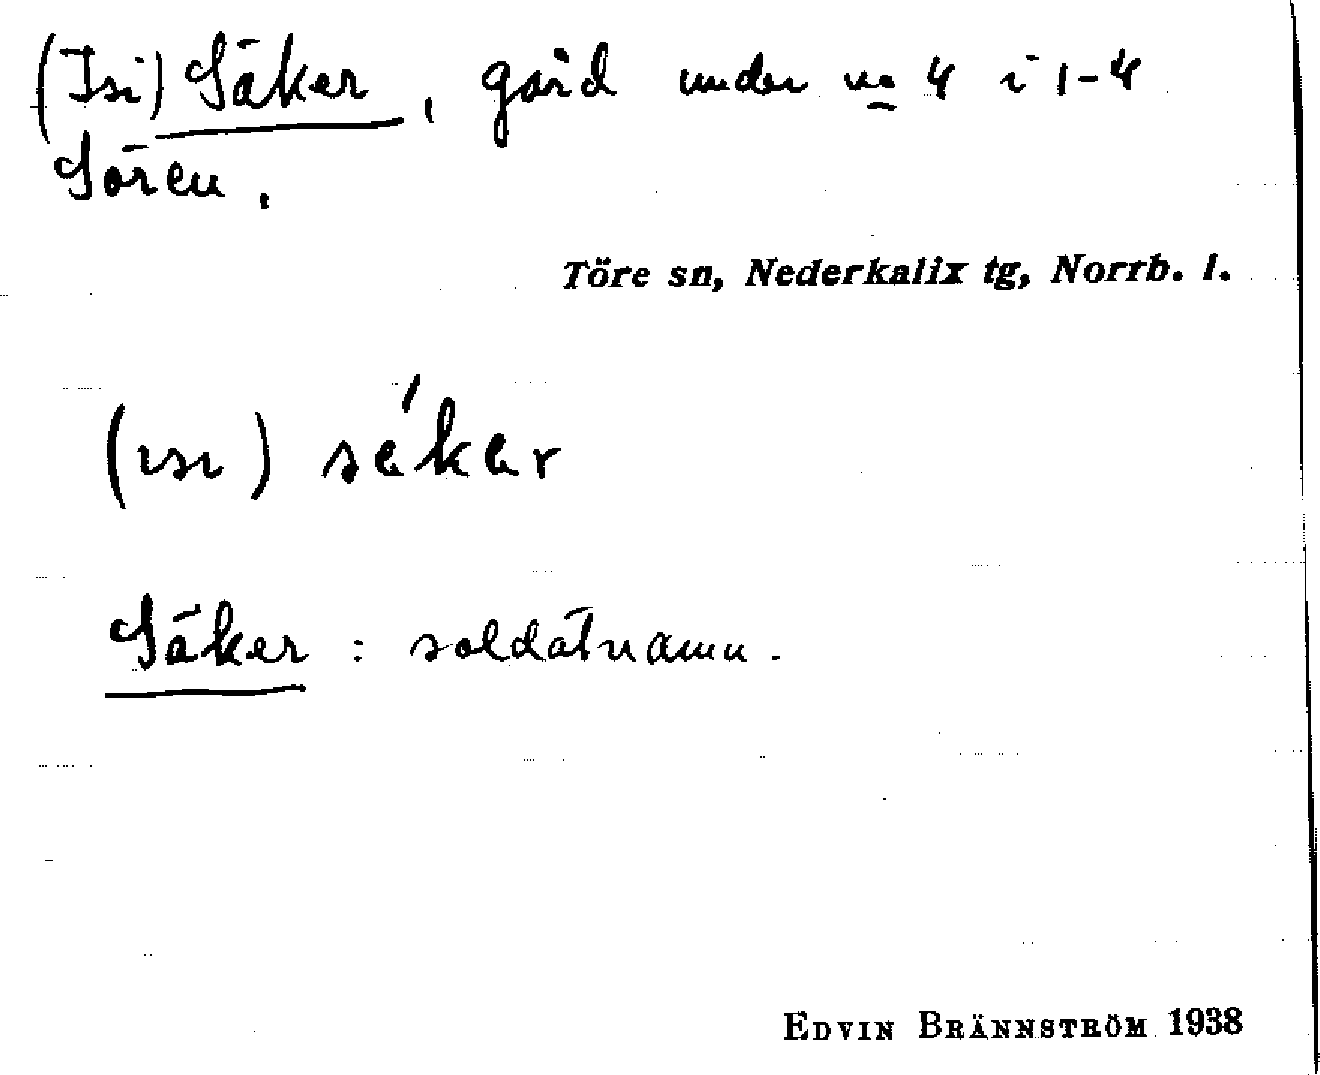 (Isi) Säker, gård under no 4 i 1-4
Sören.
Töre sn, Nederkalix tg, Norrb. l.
(ısı) sekər
Säker : soldatnamn.
EDVIN BRÄNNSTRÖM 1938